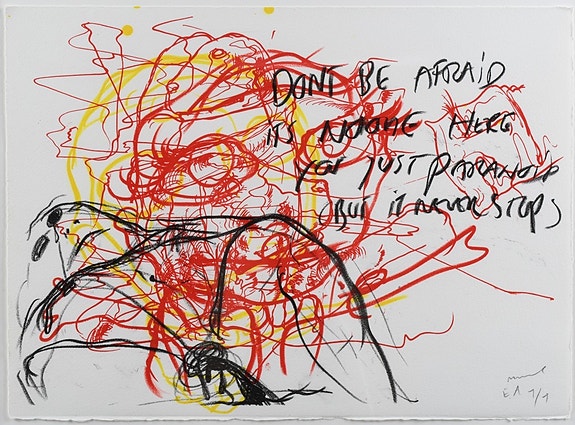 DONT BE AFRAID
ITS NOONE HERE
YOU JUST PARANOID
BUT IT NEVER STOPS
EA 1/1